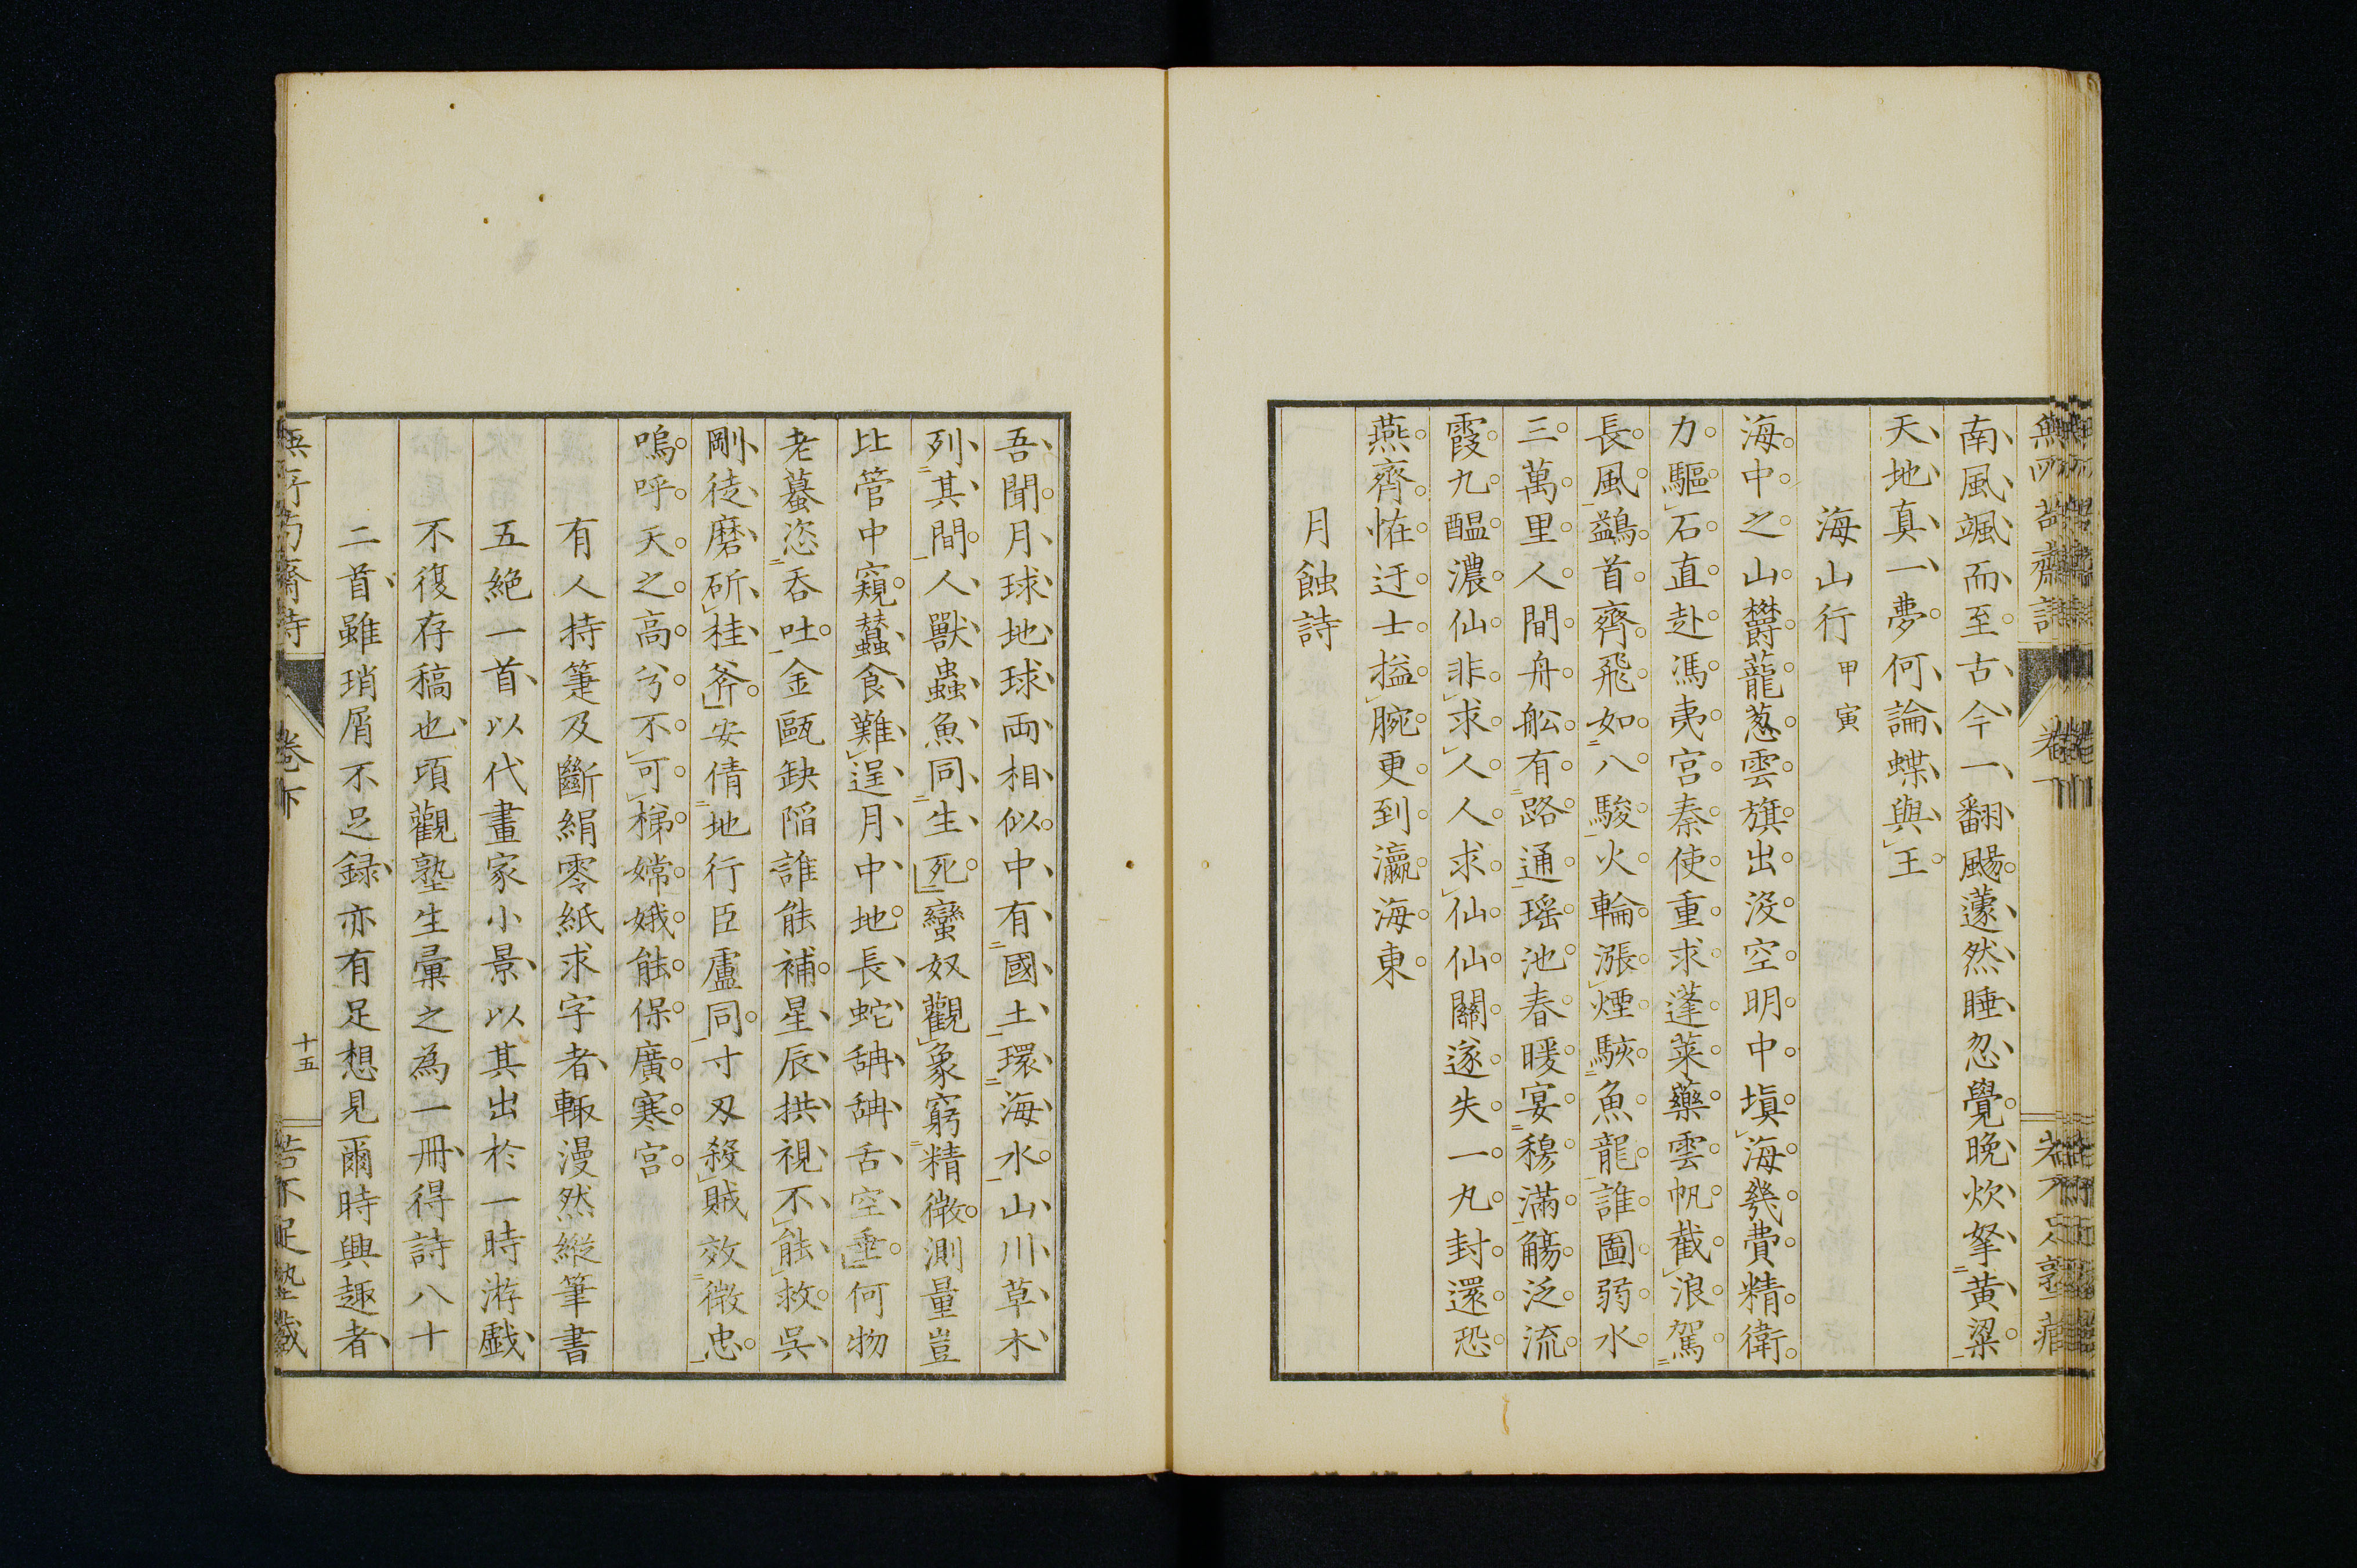 南風颯而至古今一翻颺蘧然睡忽覺晚炊拏黄粱
天地真一夢何論蝶與王
海山行 甲寅
海中之山欝蘢葱雲旗出没空明中塡海幾費精衛
力驅石直赴馮夷宮秦使重求蓬萊藥雲帆截浪駕
長風鷁首齊飛如八駿火輪漲煙駭魚龍誰圖弱水
三萬里人間舟舩有路通瑶池春暖宴穆滿觴泛流
霞九醖濃仙非求人人求仙仙關遂失一丸封還恐
燕齊恠迂士搤腕更到瀛海東
月蝕詩
吾聞月球地球両相似中有國土環海水山川草木
列其間人獸蟲魚同生死蠻奴觀象窮精微測量豈
比管中窺蠶食難逞月中地長蛇舑舑舌空垂何物
老蟇恣吞吐金甌缺陥誰能補星辰拱視不能救呉
剛徒磨斫桂斧安倩地行臣盧同寸刄殺賊效微忠
嗚呼天之高兮不可梯嫦娥能保廣寒宮
有人持箑及斷絹零紙求字者輙漫然縦筆書
五絶一首以代畫家小景以其出於一時游戯
不復存稿也頃觀塾生彙之為一冊得詩八十
二首雖瑣屑不足録亦有足想見爾時興趣者
卷下
十五